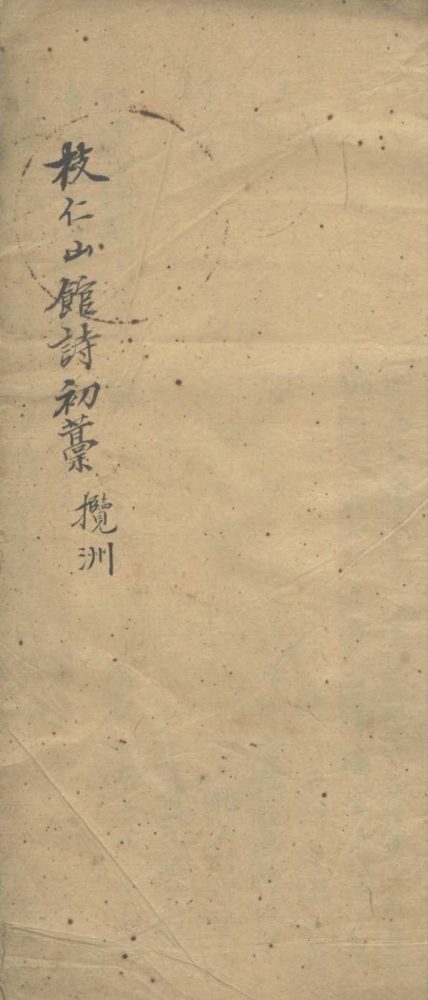 枝仁山館詩初藁
攬洲